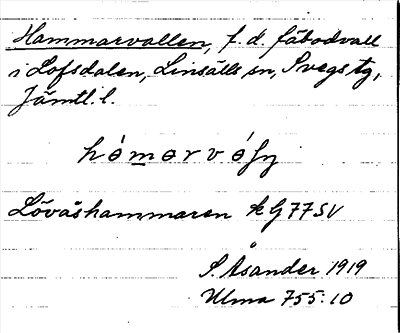 Hammarvallen, f.d. fäbodvall
i Lofsdalen, Linsälls sn, Svegs tg,
Jämtl. l.
Lövåshammaren kG 77 SV
S. Åsander 1919
Ulma 755:10